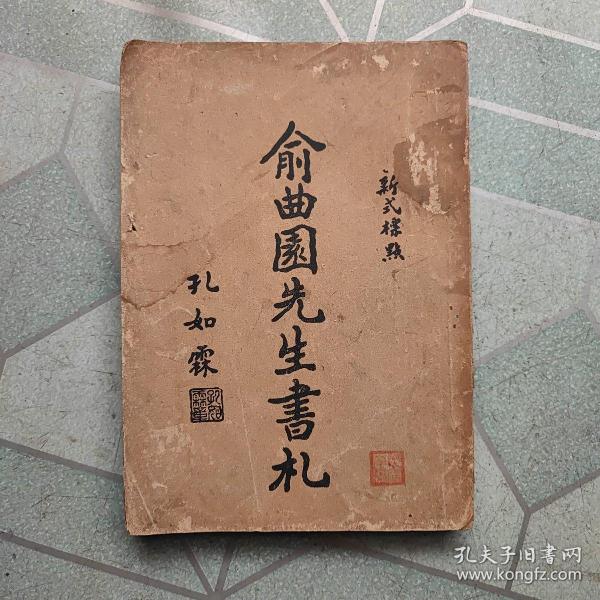 新式標點
俞曲園先生書札
孔如霖
孔夫子旧書网
www.kongfz.com